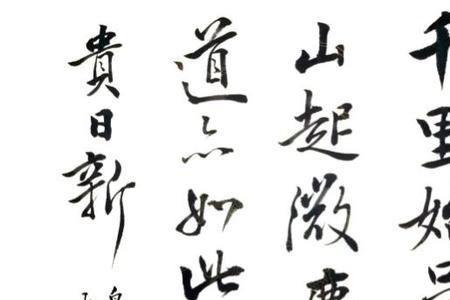 千里始
山起微
道亦如此
貴日新